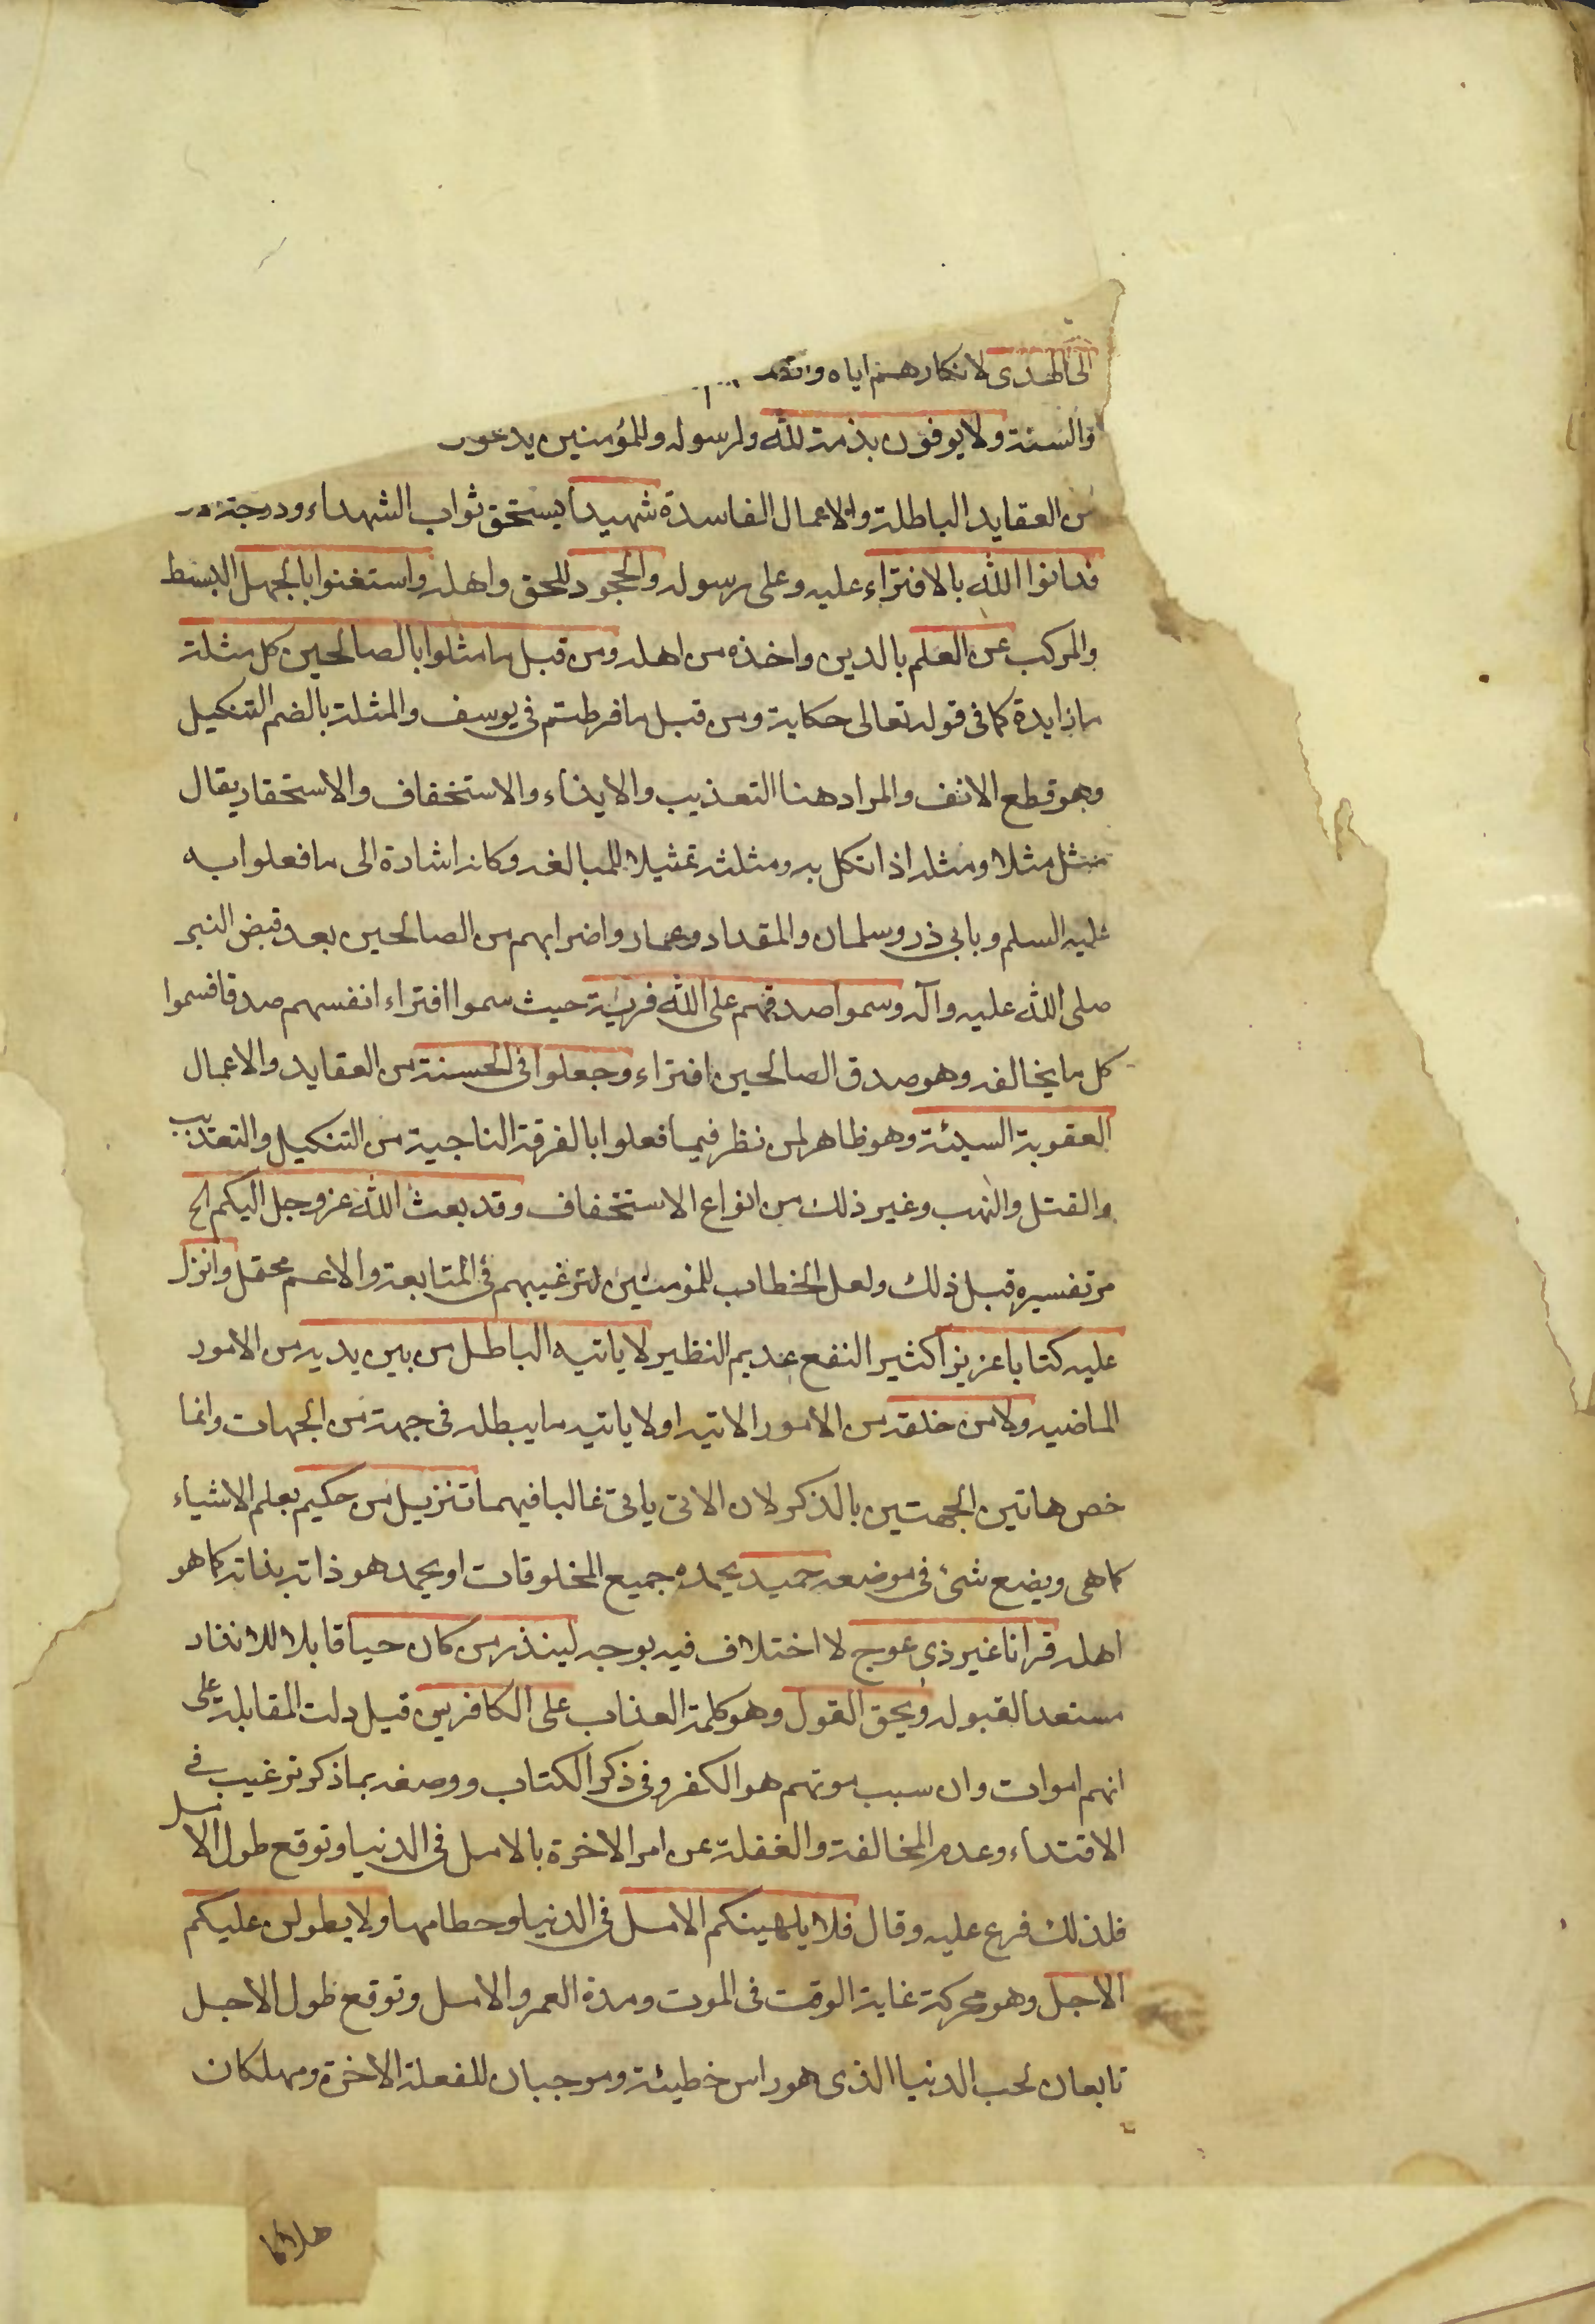 الى الهدى لانكارهم اياه و
والسنة ولا يوفون بذمة لله ولرسوله وللمؤمنين يدعون
من العقايد الباطلة والاعمال الفاسدة شهيدا يستحق ثواب الشهداء ودرجة
فدانوا الله بالافتراء عليه وعلى رسوله والجحود للحق واهله واستغنوا بالجهل البسط
والمركب عن العلم بالدين واخذه من اهله ومن قبل ما مثلوا بالصالحين كل مثلة
ما زايدة كما فى قوله تعالى حكاية ومن قبل ما فرطتم فى يوسف والمثلة بالضم التنكيل
وهو قطع الانف والمراد هنا التعذيب والايذاء والاستخفاف والاستحقار يقال
مثل مثلا ومثله اذا نكل به ومثلثه تمثيلا للمبالغه وكانه اشارة الى ما فعلوا به
عليه السلم وبابى ذر وسلمان والمقداد وعمار واضرابهم من الصالحين بعد قبض النبى
صلى الله عليه وآله وسموا صدقهم على الله فرية حيث سموا افتراء انفسهم صدقا فسموا
كل ما يخالفه وهو صدق الصالحين افتراء وجعلوا فى الحسنة من العقايد والاعمال
العقوبة السيئة وهو ظاهر لمن نظر فيما فعلوا بالفرقة الناجية من التنكيل والتعذيب
والقتل والنهب وغير ذلك من انواع الاستخفاف وقد بعث الله عز وجل اليكم الخ
مر تفسيره قبل ذلك ولعل الخطاب للمؤمنين لترغيبهم فى المتابعة والاعم محتمل وانزل
عليه كتابا عزيزا كثير النفع عديم النظير لا ياتيه الباطل من بين يديه من الامور
الماضيه ولا من خلفه من الامور الاتيه اولا ياتيه ما يبطله فى جهة من الجهات وانما
خص هاتين الجهتين بالذكر لان الاتى ياتى غالبا فيهما تنزيل من حكيم يعلم الاشياء
كما هى ويضع شئ فى موضعه حميد يحمده جميع المخلوقات او يحمد هو ذاته بذاته كما هو
اهله قرانا غير ذى عوج لا اختلاف فيه بوجه لينذر من كان حيا قابلا للانذار
مستعدا لقبوله ويحق القول وهو كلمة العذاب على الكافرين قيل دلت المقابلة على
انهم اموات وان سبب موتهم هو الكفر وفى ذكر الكتاب ووصفه بما ذكر ترغيب فى
الاقتداء وعدم المخالفة والغفلة عن امر الاخرة بالامل فى الدنيا وتوقع طول الامل
فلذلك فرع عليه وقال فلا يلهينكم الامل فى الدنيا وحطامها ولا يطولن عليكم
الاجل وهو محركة غاية الوقت فى الموت ومدة العمر والامل وتوقع طول الاجل
تابعان لحب الدنيا الذى هو راس خطيئة وموجبان للغفلة الاخرة ومهلكان